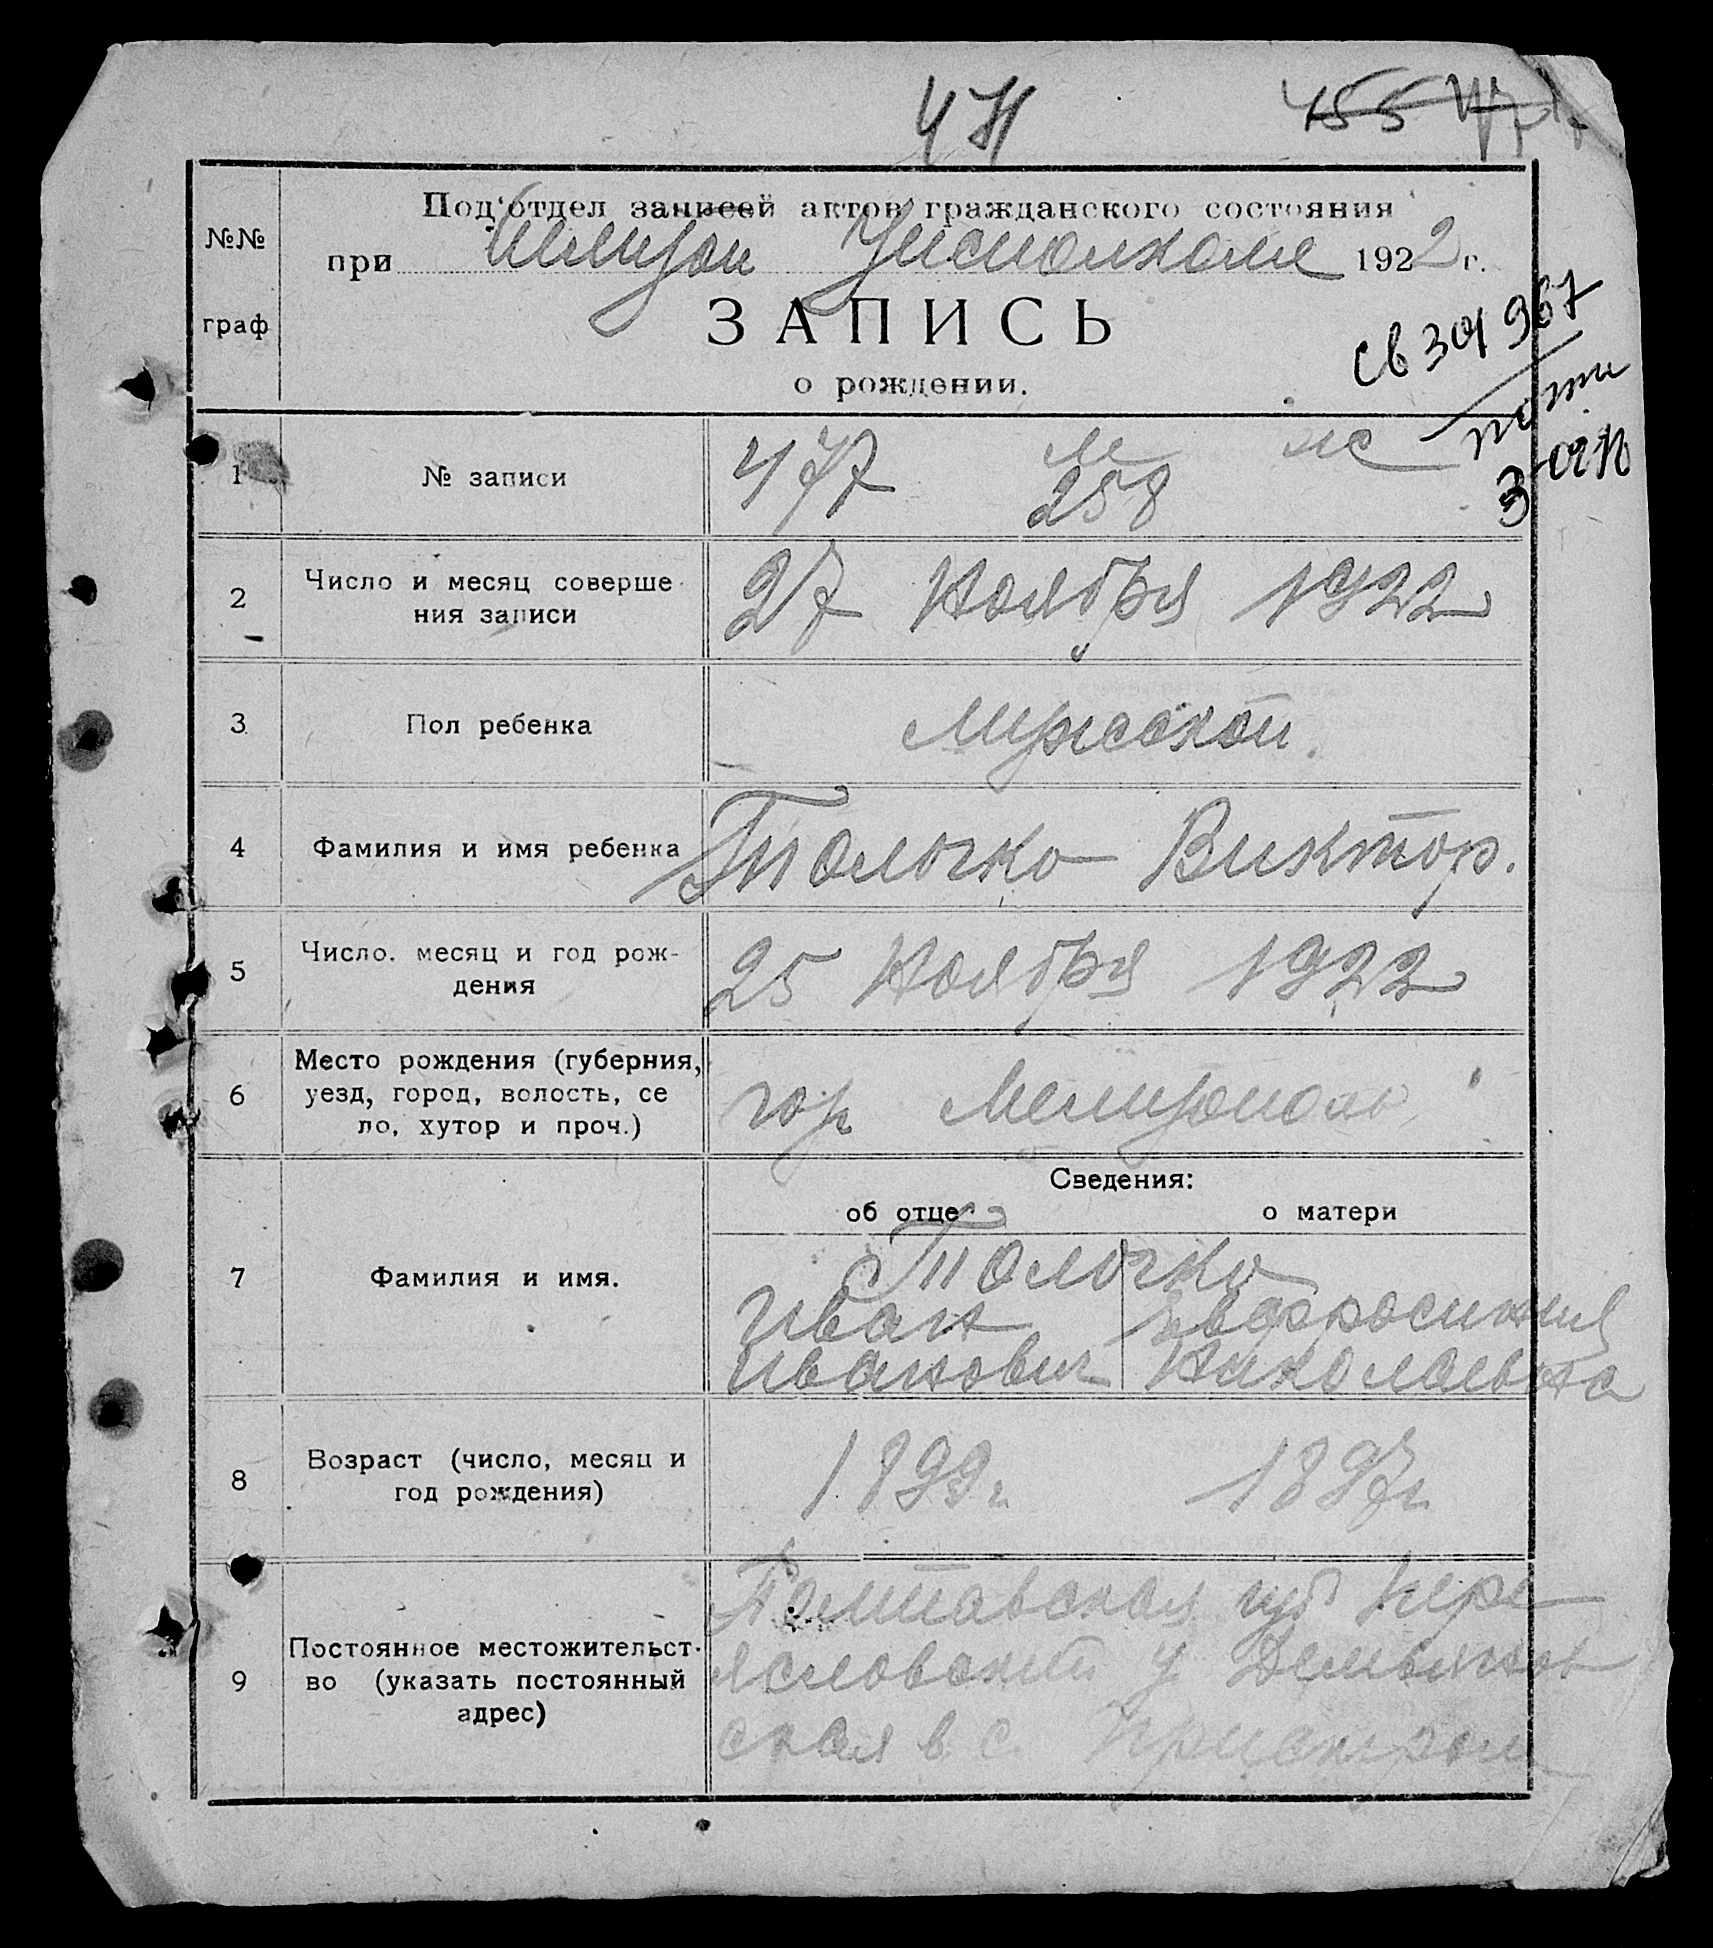 477
455 477
Под'отдел записей актов гражданского состояния
№№
при Мелитоп Уисполкоме 1922 г.
граф
ЗАПИСЬ
о рождении.
св 30/I 967
м ж
1 № записи 477 258
2 Число и месяц соверше
ния записи
27 Ноября 1922
3 Пол ребенка Мужской
4 Фамилия и имя ребенка Толочко Виктор.
5 Число. месяц и год рож-
дения
25 Ноября 1922
Место рождения (губерния,
6 уезд, город, волость, се
ло, хутор и проч.)
гор Мелитополь
Сведения:
об отце о матери
7 Фамилия и имя.
Толочко
Иван Евфросиния
Иванович Николаевна
8 Возраст (число, месяц и
год рождения)
1899г 1897г
9 Постоянное местожительст-
во (указать постоянный
адрес)
Полтавская губ Пере
яславский у Демьянов
ская в. с.